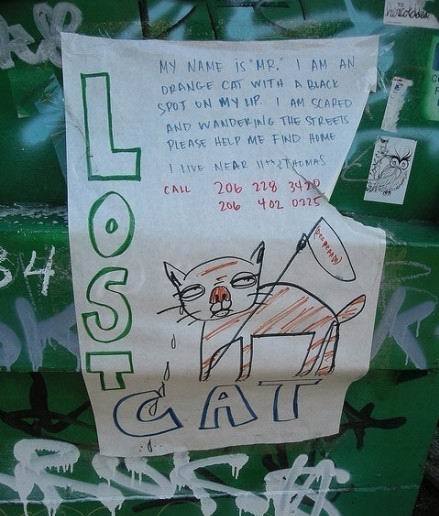 MY NAME IS "MR." I AM AN
ORANGE CAT WITH A BLACK
SPOT ON MY LIP. I AM SCARED
AND WANDERING THE STREETS
PLEASE HELP ME FIND HOME
I LIVE NEAR 11TH & THOMAS
CALL 206 228 3420
206 402 0225
LOST
CAT
34